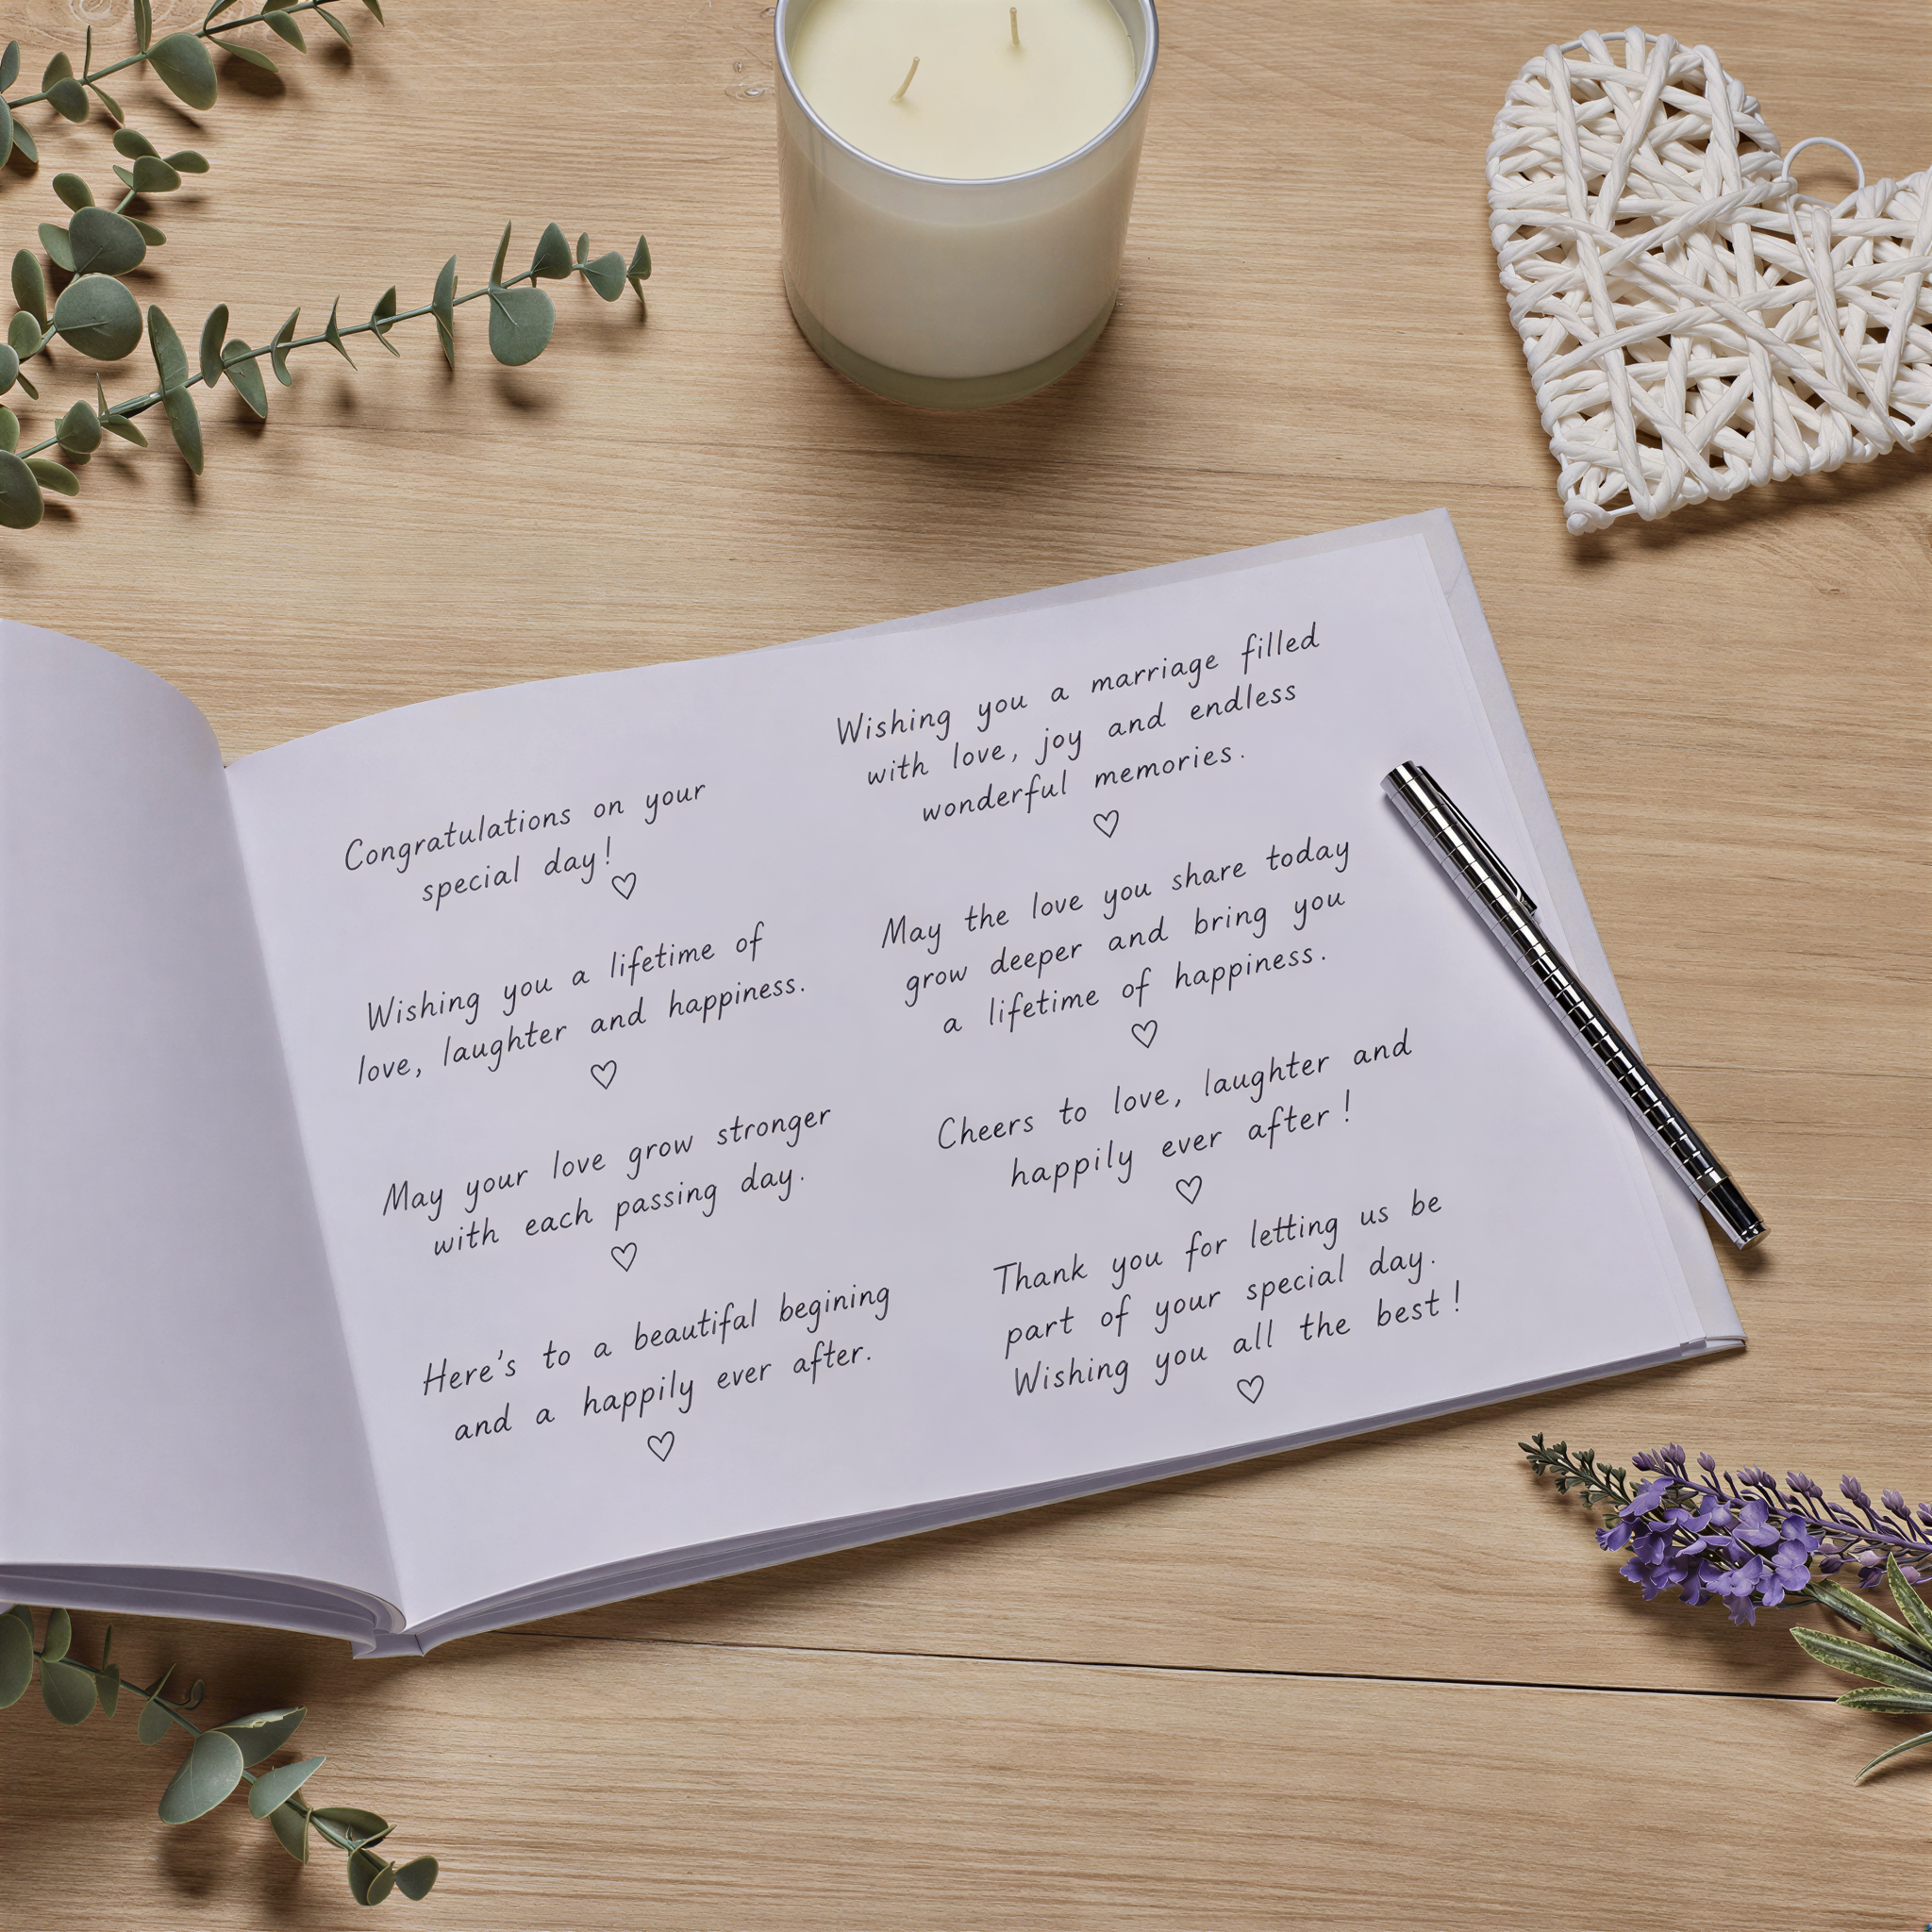 Congratulations on your
special day!
Wishing you a lifetime of
love, laughter and happiness.
May your love grow stronger
with each passing day.
Here's to a beautiful begining
and a happily ever after.
Wishing you a marriage filled
with love, joy and endless
wonderful memories.
May the love you share today
grow deeper and bring you
a lifetime of happiness.
Cheers to love, laughter and
happily ever after!
Thank you for letting us be
part of your special day.
Wishing you all the best!